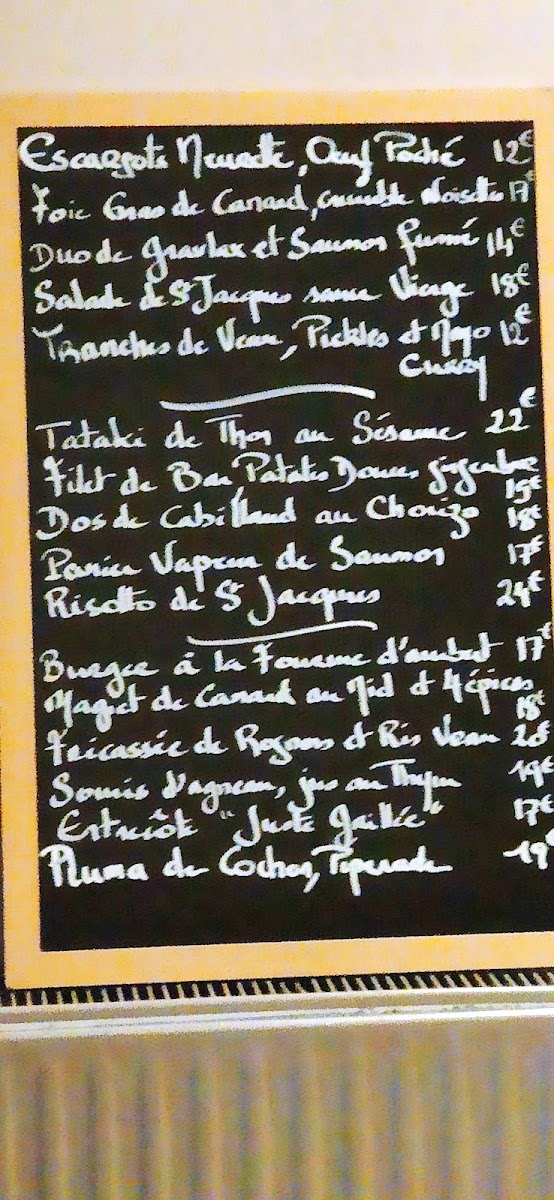 Escargots Meurette, Oeuf Poché 12€
Foie Gras de Canard, crumble Noisettes 17€
Duo de Gravlax et Saumon fumé 14€
Salade de St Jacques sauce Vierge 18€
Tranches de Veau, Pickles et Mayo 12€
Curry
Tataki de Thon au Sésame 22€
Filet de Bar Patates Douces gingembre
15€
Dos de Cabillaud au Chorizo 18€
Panier Vapeur de Saumon 17€
Risotto de St Jacques 24€
Burger à la Fourme d'ambert 17€
Magret de Canard au Miel et 4 épices
18€
Fricassée de Rognons et Ris Veau 20€
Souris d'agneau, jus au Thym 19€
Entrecôte "Juste Grillée" 17€
Pluma de Cochon, Piperade 19€